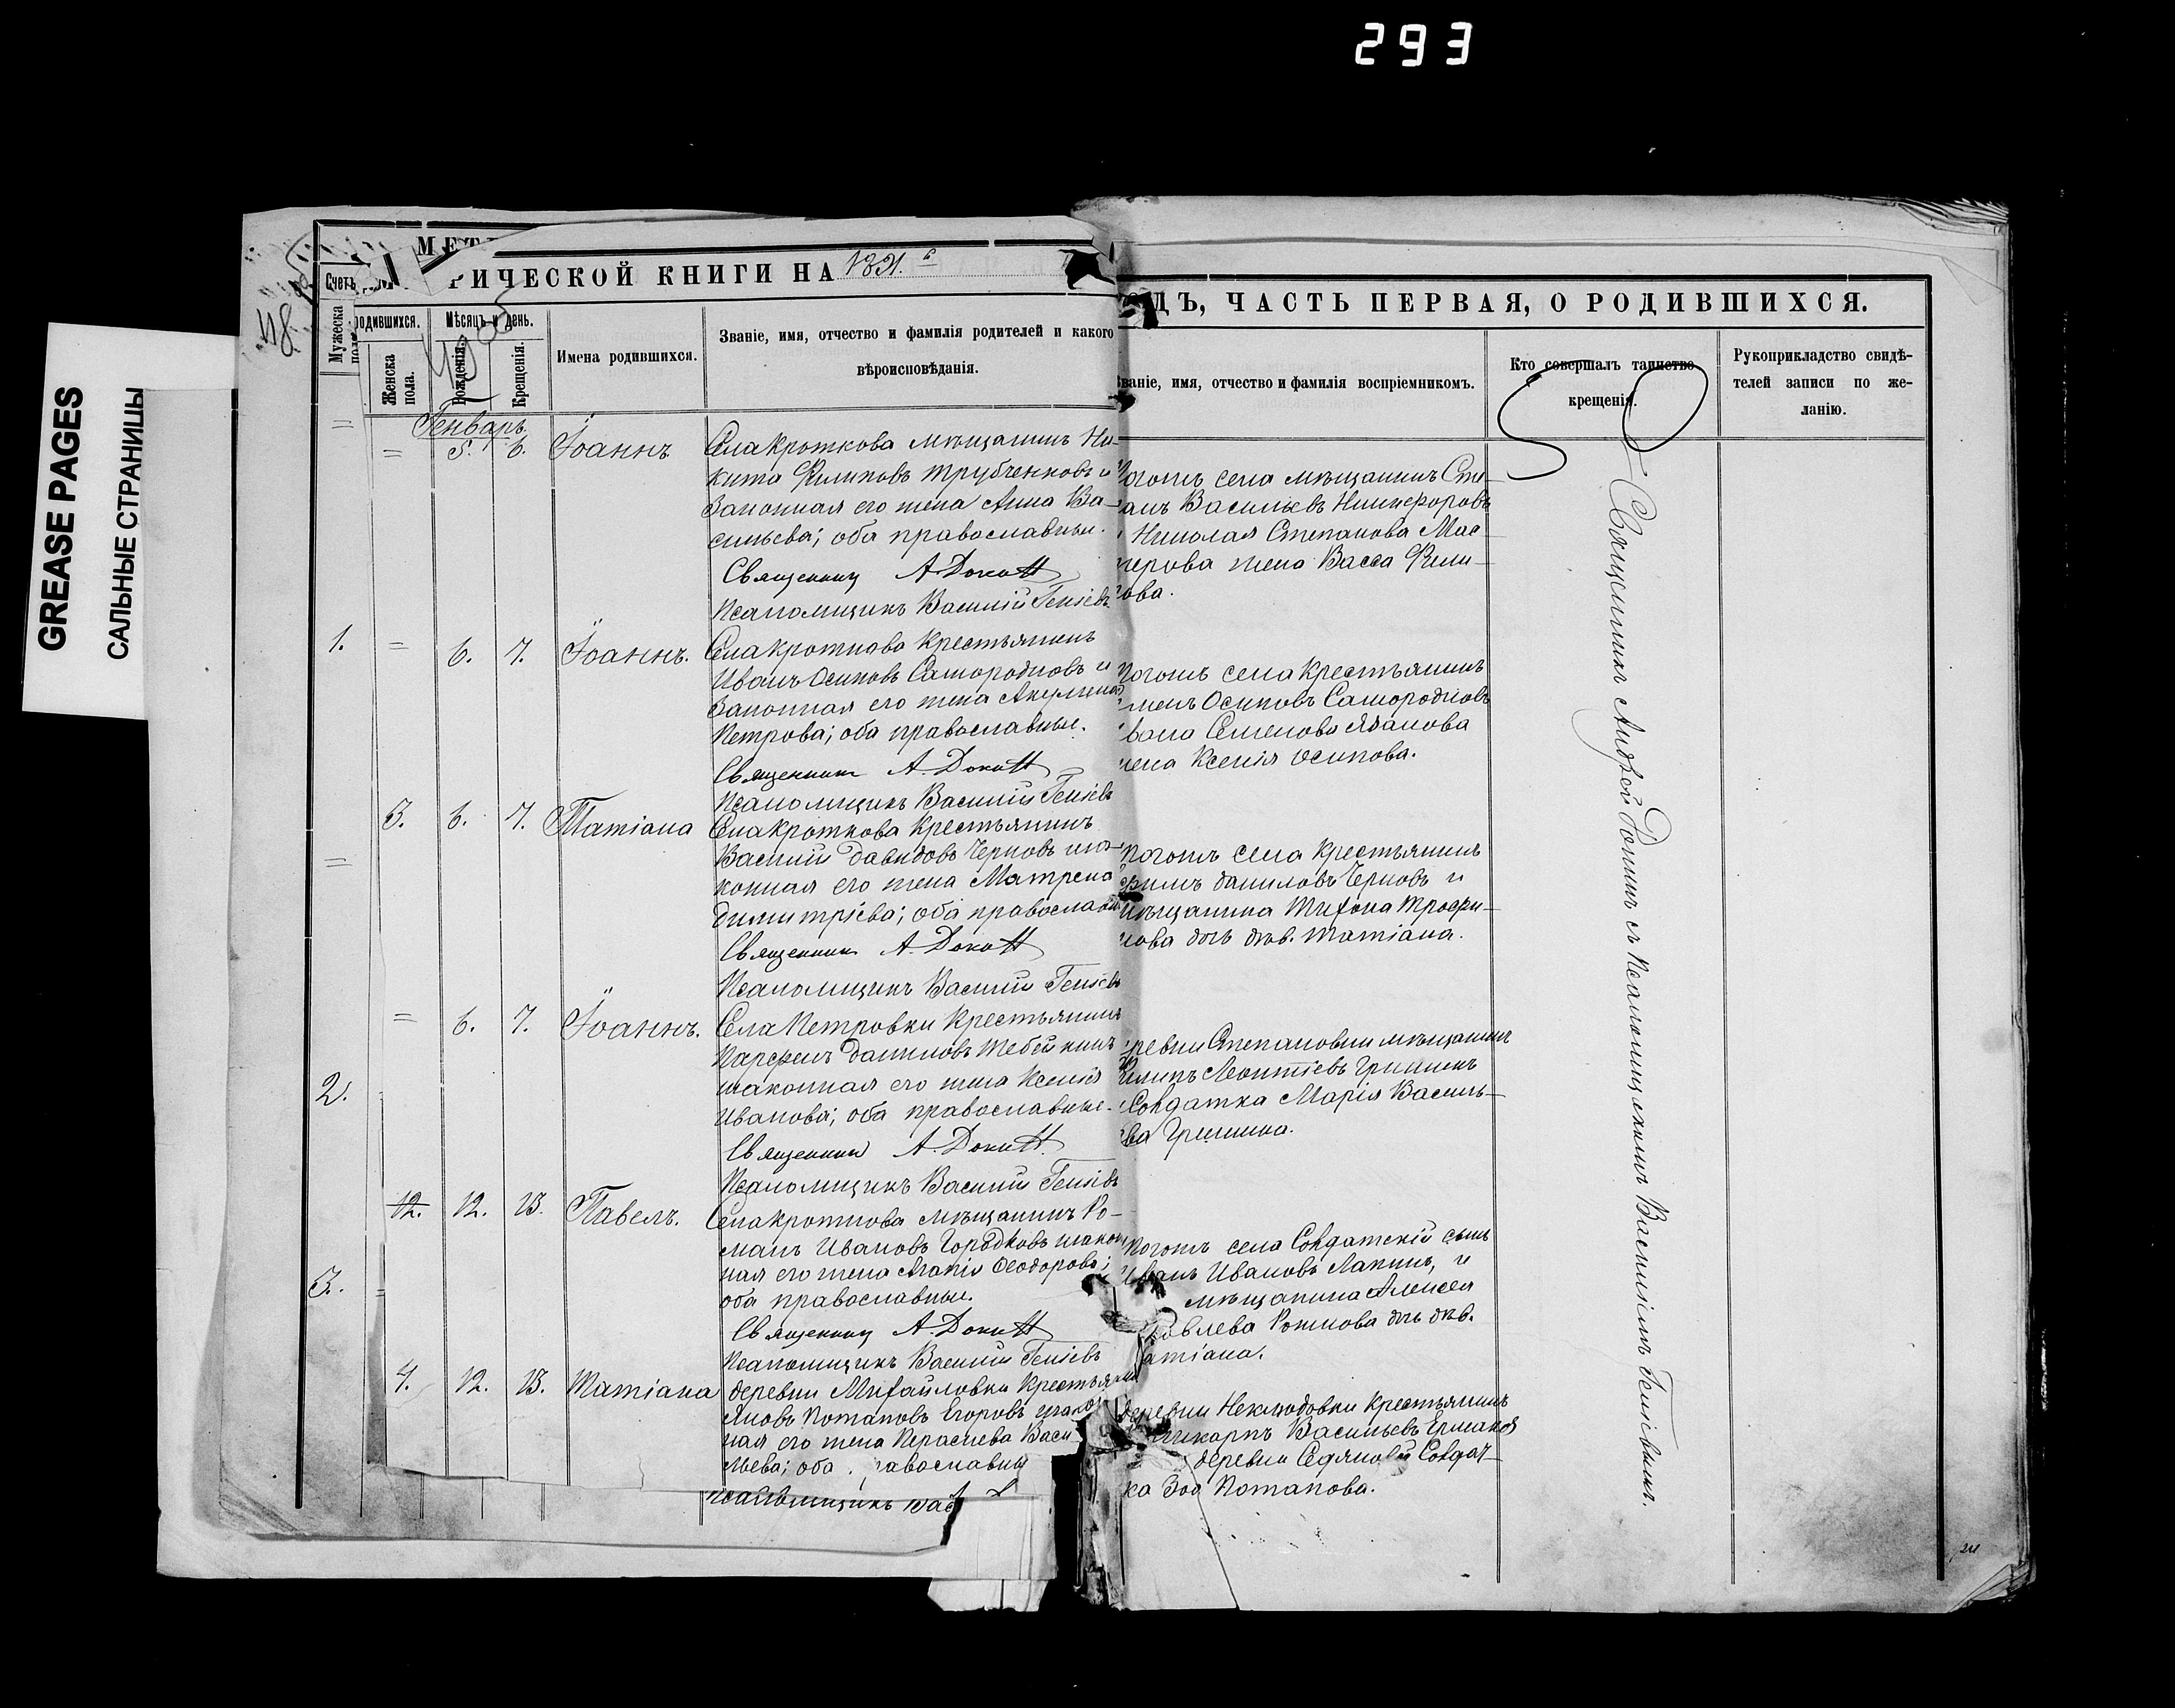 293
GREASE PAGES
САЛЬНЫЕ СТРАНИЦЫ
118
МЕТ
РИЧЕСКОЙ КНИГИ НА 1891.
ДЪ, ЧАСТЬ ПЕРВАЯ, О РОДИВШИХСЯ.
Счетъ
родившихся.
Мѣсяцъ и день.
Мужеска
Женска
пола.
Рожденія.
Крещенія.
Имена родившихся.
Званіе, имя, отчество и фамилія родителей и какого
вѣроисповѣданія.
Званіе, имя, отчество и фамилія воспріемниковъ.
Кто совершалъ таинство
крещенія.
Рукоприкладство свидѣ-
телей записи по же-
ланію.
Генварь.
= = 5. 6. Іоаннъ
Села Кроткова мѣщанинъ Ни-
кита Филиповъ Трубченковъ и
законная его жена Анна Ва-
сильева; оба православные.
Священникъ А. Доки
Псаломщикъ Василій Генсіевъ
тогожъ села мѣщанинъ Сте-
анъ Васильевъ Никифоровъ
Николая Степанова Мас-
ерова жена Васса Фили-
ова.
1. = 6. 7. Іоаннъ.
Села Кроткова крестьянинъ
Иванъ Осиповъ Самородновъ и
законная его жена Акулина
Петрова; оба православные.
Священникъ А. Доки
Псаломщикъ Василій Генсіевъ
тогожъ села крестьянинъ
менъ Осиповъ Самородновъ
вана Семенова
жена Ксенія Осипова.
= 3. 6. 7. Татіана
Села Кроткова крестьянинъ
Василій Давидовъ Черновъ
конная его жена Матрена
Димитріева; оба православн
Священникъ А. Доки
Псаломщикъ Василій Генсіевъ
тогожъ села крестьянинъ
фимъ Даниловъ Черновъ и
мѣщанина Тихона Трофи-
мова дочь дѣв. Татіана.
2. = 6. 7. Іоаннъ.
Села Петровки крестьянинъ
Парфенъ Даниловъ
законная его жена Ксенія
Иванова; оба православные.
Священникъ А. Доки
Псаломщикъ Василій Генсіевъ
ревни Степановки мѣщанинъ
Филипъ Леонтіевъ Гришинъ
Солдатка Марія Василь-
ева Гришина.
3. = 12. 12. 13. Павелъ.
Села Кроткова мѣщанинъ Ро-
манъ Ивановъ Городковъ закон
ная его жена Агапія Ѳеодорова;
оба православные.
Священникъ А. Доки
Псаломщикъ Василій Генсіевъ
тогожъ села Солдатскій сынъ
Иванъ Ивановъ Лапинъ, и
мѣщанина Алексея
Яковлева дочь дѣв.
атіана.
4. 12. 13. Татіана
деревни Михайловки крестьянинъ
Яковъ Потаповъ Егоровъ закон
ная его жена Васи
льева; оба равославны
псаломщикъ Вас
деревни Неклюдовки крестьянинъ
ликарпъ Васильевъ Ермаков
деревни Солдат-
ка Зоя Потапова.
Священникъ Андрей Доминъ съ Псаломщикомъ Василіемъ Генсіевымъ.